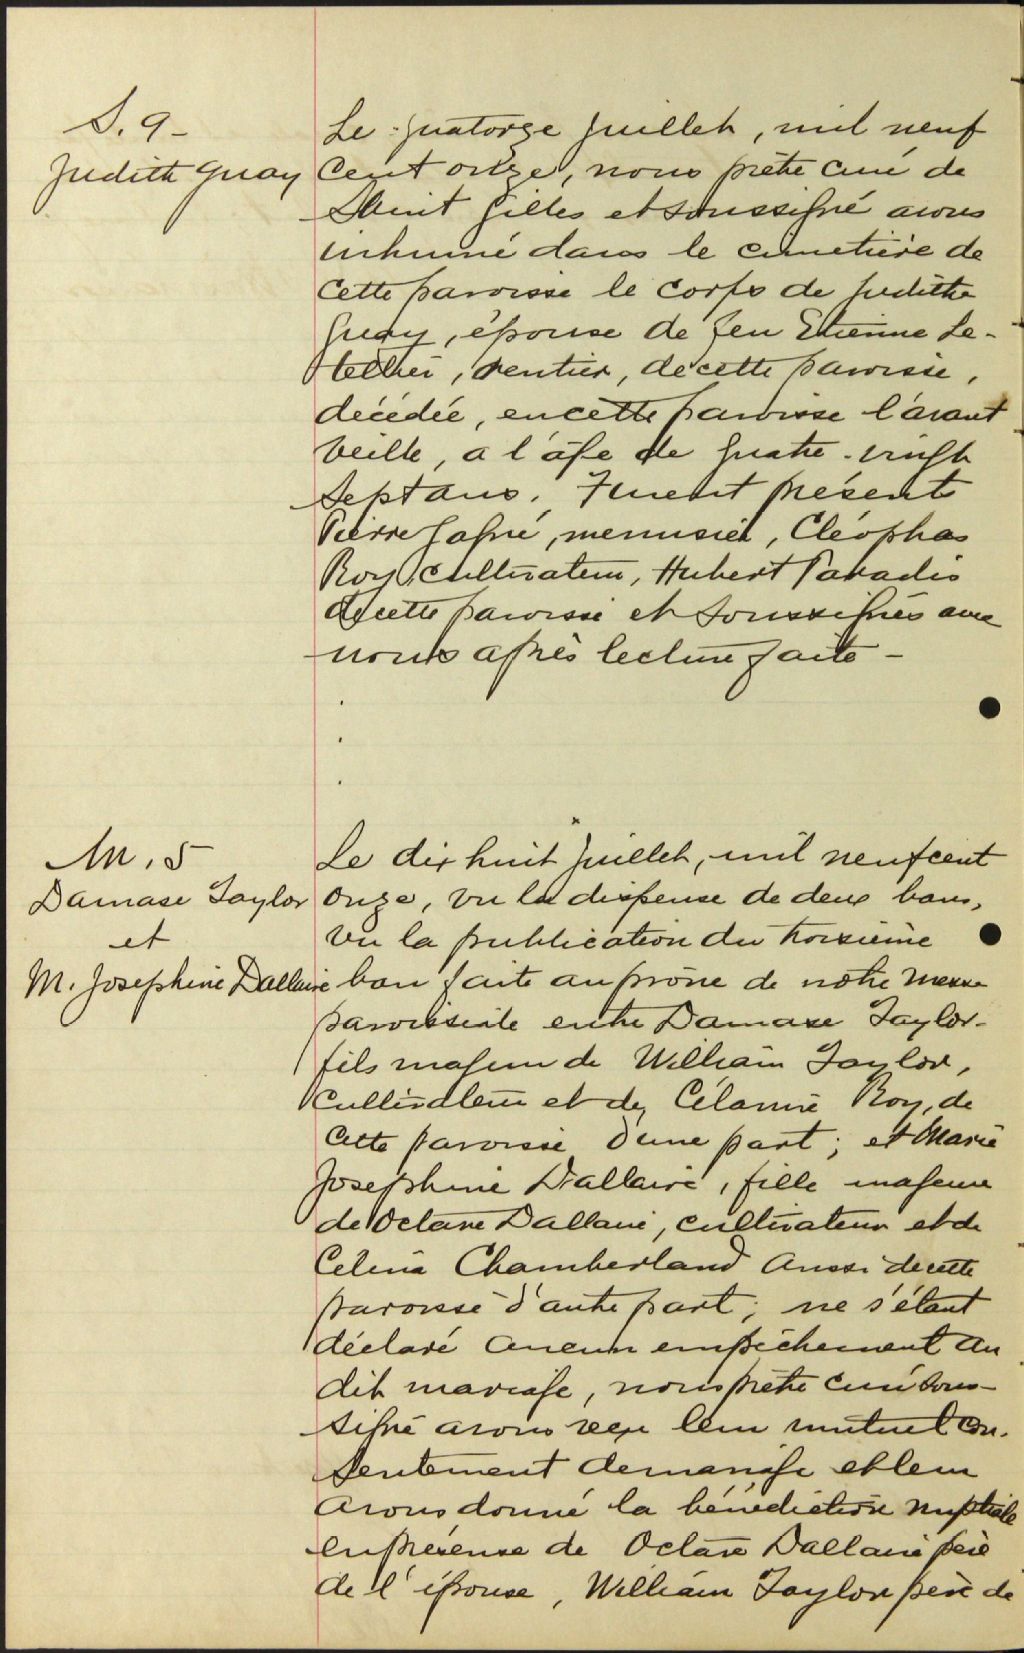 S. 9 -
Judith Guay
Le quatorze juillet, mil neuf
cent onze, nous prêtre curé de
Saint Gilles et soussigné avons
inhumé dans le cimetière de
cette paroisse le corps de Judithe
Guay, épouse de feu Etienne Le-
tellier, rentier, de cette paroisse,
décédée, en cette paroisse l'avant
veille, a l'âge de quatre-vingt
sept ans. Furent présents
Pierre Gagné, menuisier, Cléophas
Roy, cultivateur, Hubert Paradis
de cette paroisse et soussignés avec
nous après lecture faite -
M. 5
Damase Taylor
et
M. Josephine Dallaire
Le dix huit juillet, mil neuf cent
onze, vu la dispense de deux bans,
vu la publication du troisième
ban faite au prône de notre messe
paroissiale entre Damase Taylor-
fils majeur de William Taylor,
cultivateur et de Célanire Roy, de
cette paroisse d'une part; et Marie
Josephine Dallaire, fille majeure
de Octave Dallaire, cultivateur et de
Celina Chamberland aussi de cette
paroisse d'autre part; ne s'étant
déclaré aucun empêchement au
dit mariage, nous prêtre curé sous-
signé avons reçu leur mutuel con-
sentement de mariage et leur
avons donné la bénédiction nuptiale
en présence de Octave Dallaire père
de l'épouse, William Taylor père de